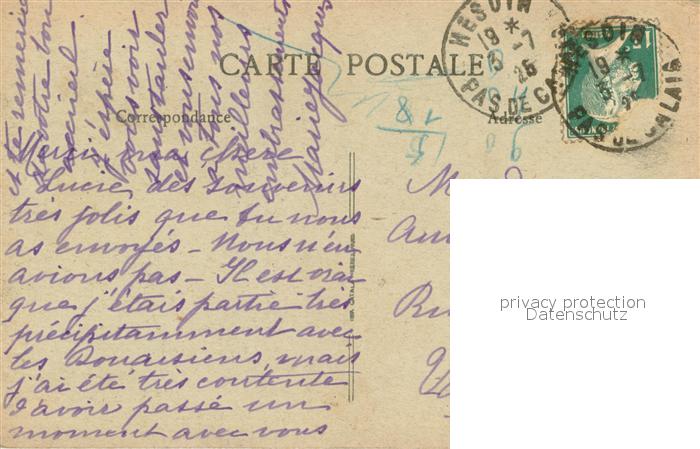 CARTE POSTALE
Correspondance
Adresse
HESDIN
19 * 7
25
PAS DE CALAIS
HESDIN
19 * 7
25
PAS DE CALAIS
15
18
Merci, ma chère
Lucie des souvenirs
très jolis que tu nous
as envoyés - Nous n'en
avions pas - Il est vrai
que j'étais partie très
précipitamment avec
les Douaisiens, mais
j'ai été très contente
d'avoir passé un
moment avec vous
et te remercie
votre bon
accueil
J'espère
vous voir
tous nos
meilleurs
embrassements
M
Am
privacy protection
Datenschutz